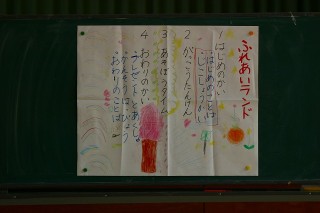 ふれあいランド
1 はじめのかい
・はじめのことば
・しょうかい
2 がっこうたんけん
3 あそぼうタイム
4 おわりのかい
・プレゼントをわたし
・かんそうはっぴょう
・おわりのことば